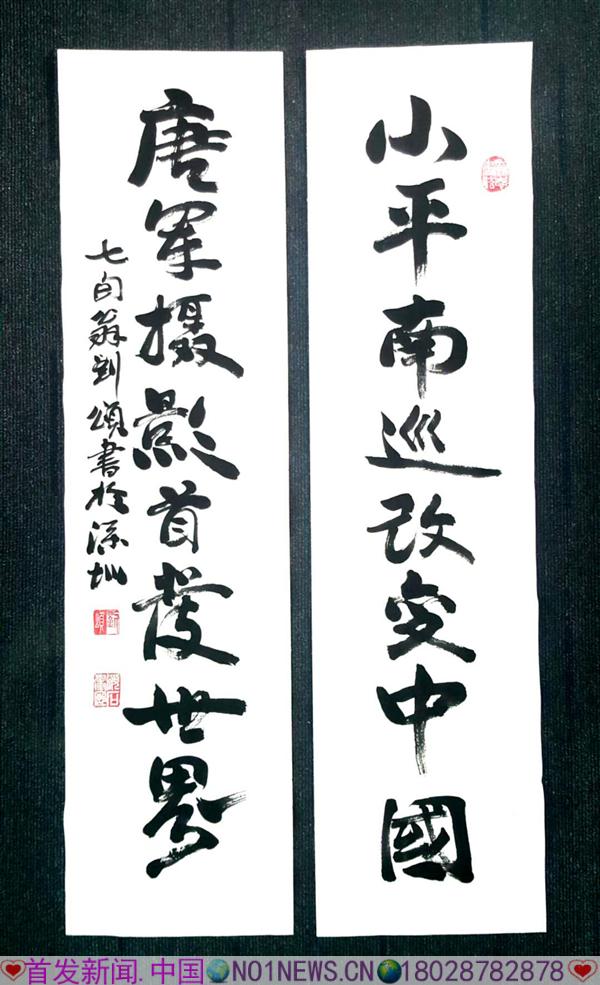 小平南巡改变中國
唐军摄影首发世界
七旬翁刘颂書於深圳
首发新闻.中国 NO1NEWS.CN 18028782878